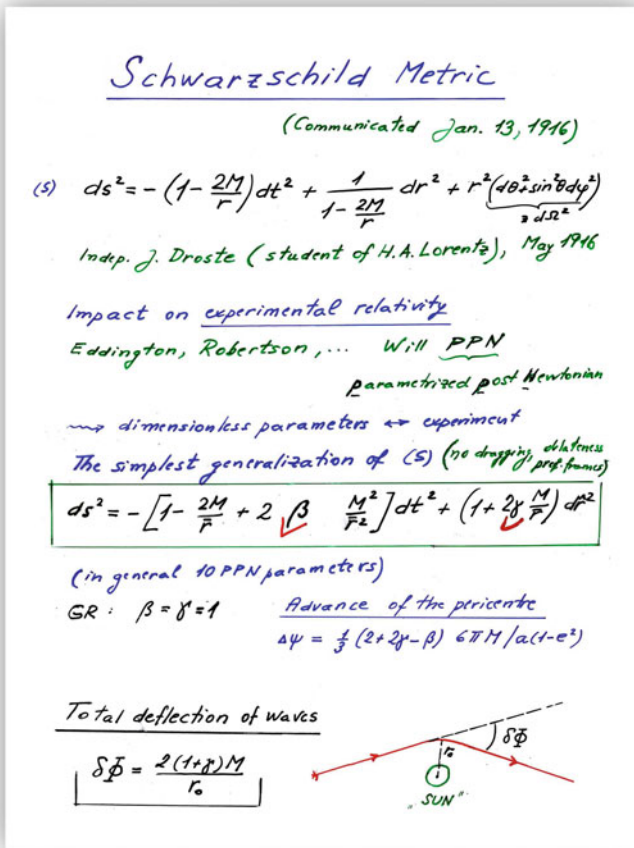 Schwarzschild Metric
(Communicated Jan. 13, 1916)
(S) ds² = − (1 − 2M/r) dt² + 1/(1 − 2M/r) dr² + r² (dθ² + sin²θ dφ²)
≡ dΩ²
Indep. J. Droste (student of H.A. Lorentz), May 1916
Impact on experimental relativity
Eddington, Robertson, ... Will PPN
Parametrized post Newtonian
⇝ dimensionless parameters ↔ experiment
The simplest generalization of (S) (no dragging, oblateness
pref. frames)
ds² = − [1 − 2M/r̄ + 2 β M²/r̄²] dt² + (1 + 2γ M/r̄) dr̄²
(in general 10 PPN parameters)
GR: β = γ = 1 Advance of the pericentre
Δψ = 1/3 (2+2γ−β) 6πM/a(1−e²)
Total deflection of waves
δΦ = 2(1+γ)M/r₀
r₀ δΦ
"SUN"